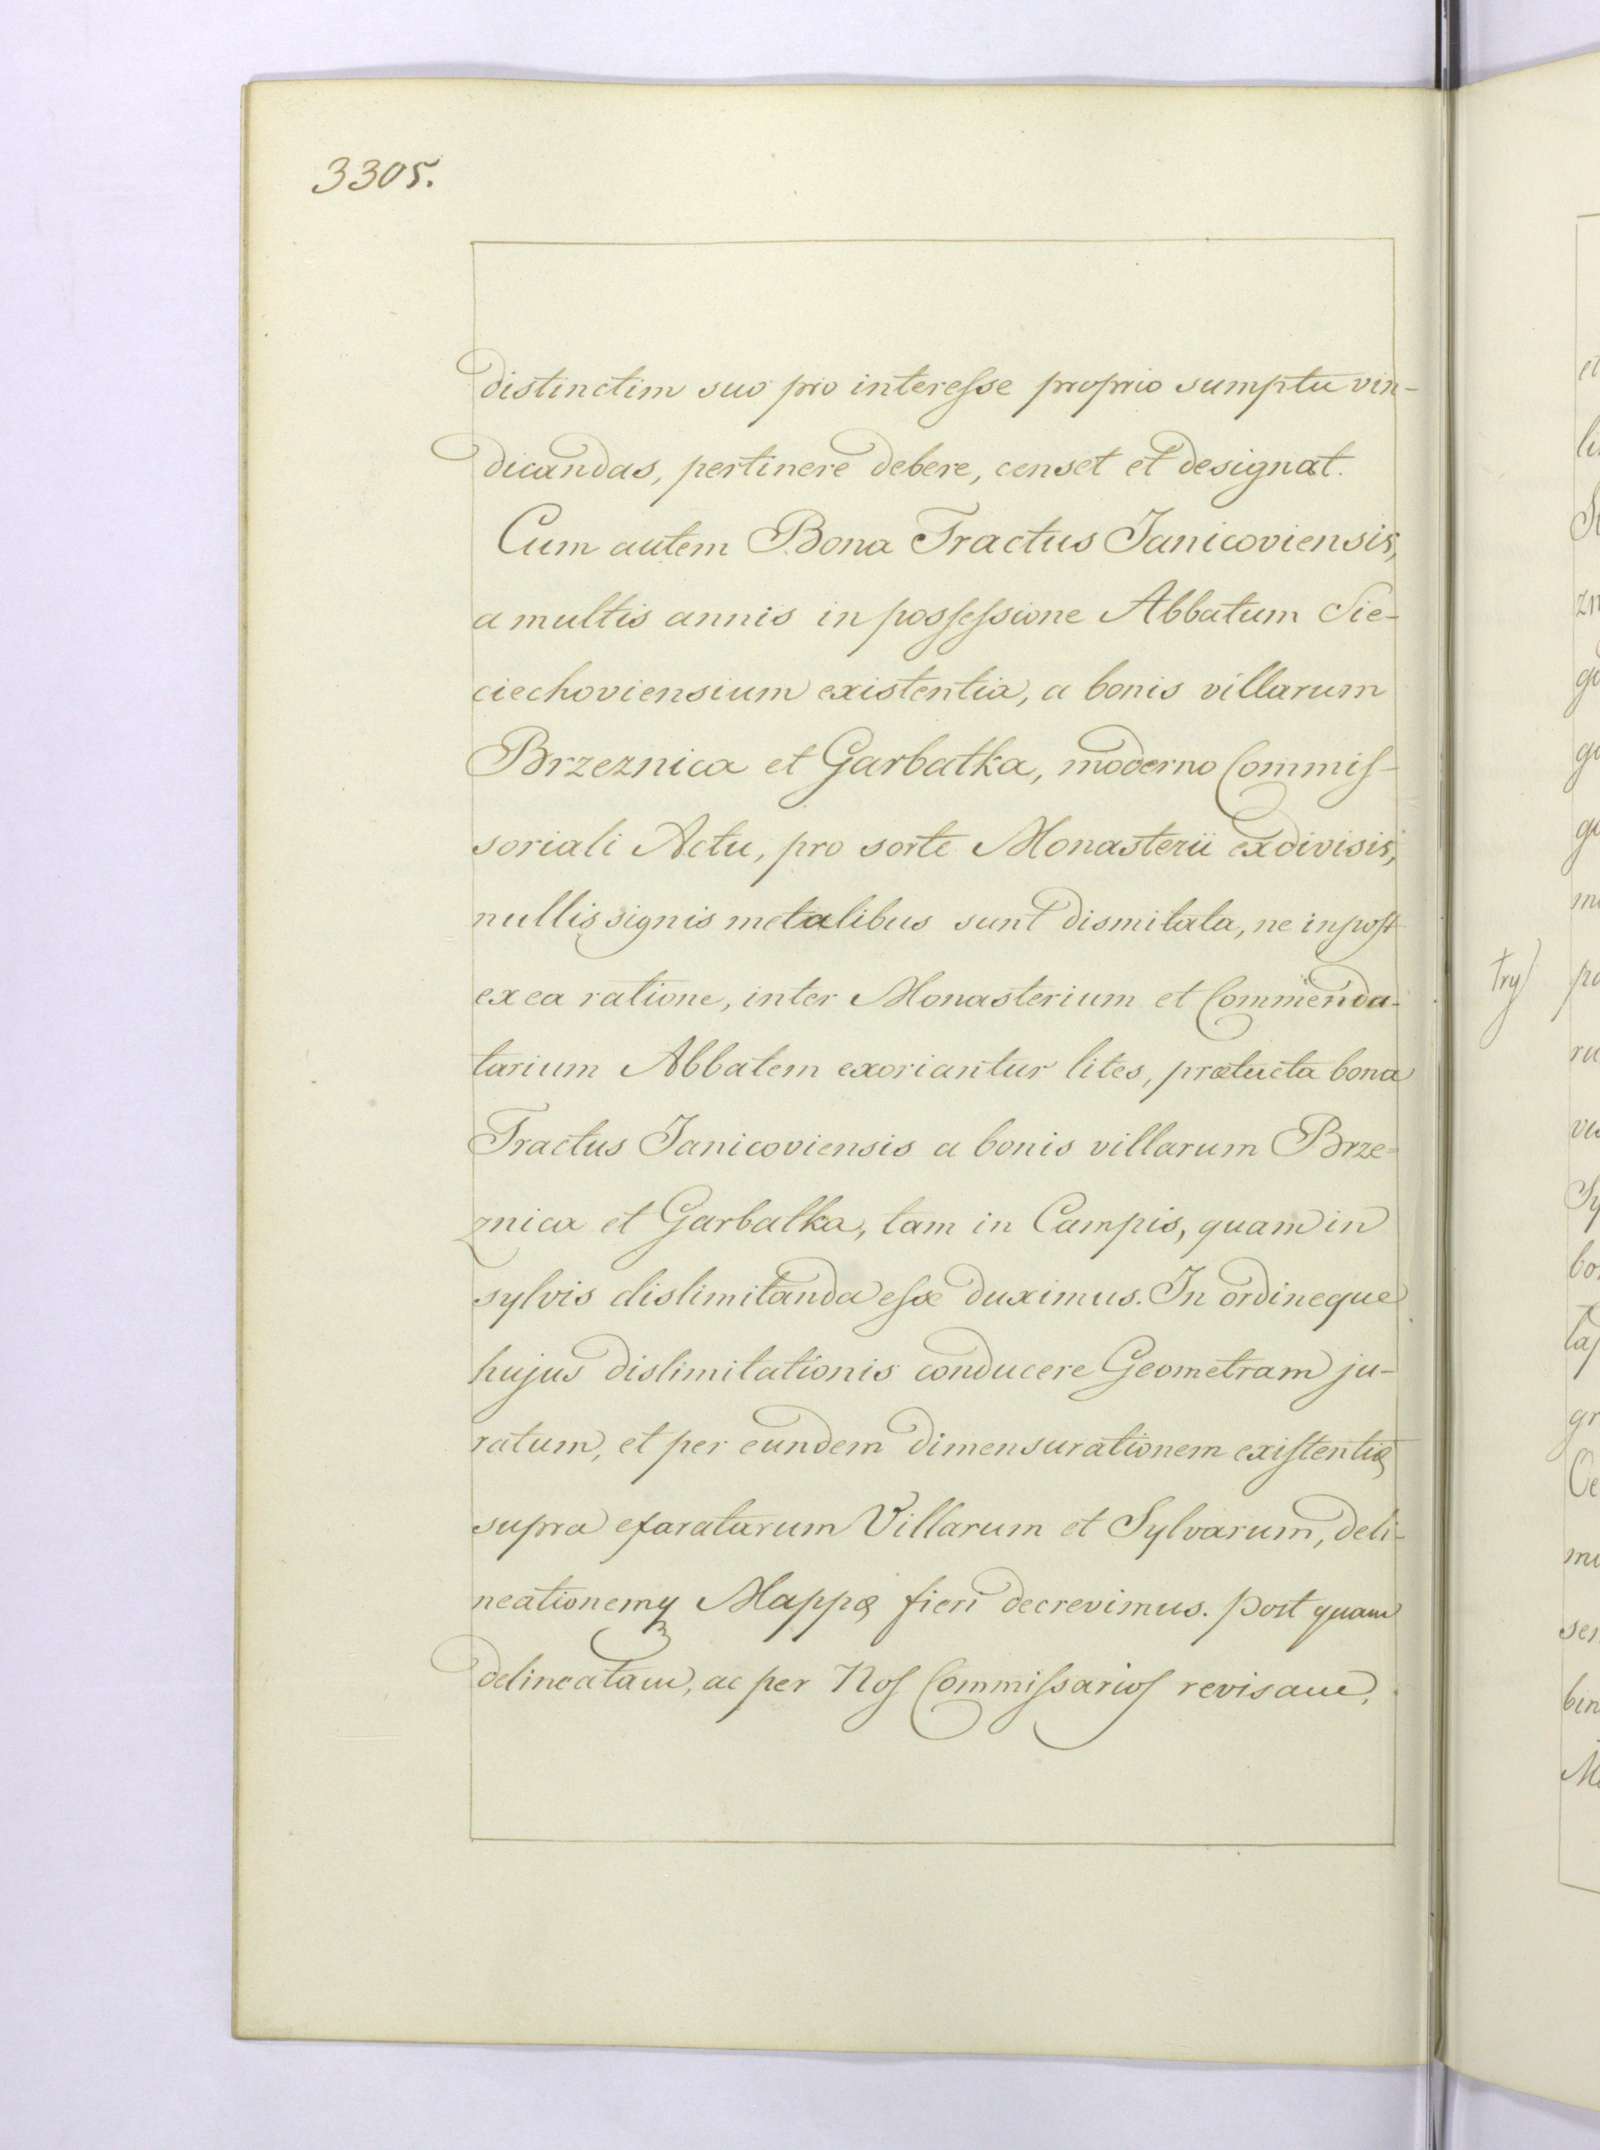 3305.
distinctim suo pro interesse proprio sumptu vin-
dicandas, pertinere debere, censet et designat.
Cum autem Bona Tractus Janicoviensis,
a multis annis in possessione Abbatum Sie-
ciechoviensium existentia, a bonis villarum
Brzeznica et Garbatka, moderno Commis-
soriali Actu, pro sorte Monasterii exdivisis,
nullis signis metalibus sunt dismitata, ne inpost
ex ea ratione, inter Monasterium et Commenda-
tarium Abbatem exoriantur lites, prætacta bona
Tractus Janicoviensis a bonis villarum Brze-
znica et Garbatka, tam in Campis, quam in
sylvis dislimitanda esse duximus. In ordineque
hujus dislimitationis conducere Geometram ju-
ratum, et per eundem dimensurationem existentiæ
supra exaratarum Villarum et Sylvarum, deli-
neationemq Mappæ fieri decrevimus. Post quam
delineatam, ac per Nos Commissarios revisam,
try